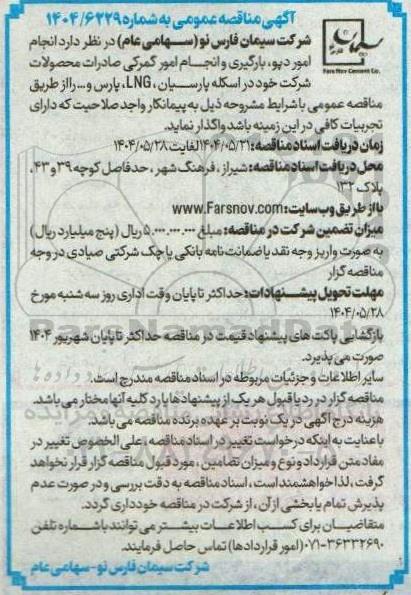 آگهی مناقصه عمومی به شماره ۱۴۰۴/۶۲۲۹
شرکت سیمان فارس نو (سهامی عام) در نظر دارد انجام
امور دپو، بارگیری و انجام امور گمرکی صادرات محصولات
شرکت خود در اسکله پارسیان، LNG، پارس و... را از طریق
Fars Nov Cement Co.
مناقصه عمومی با شرایط مشروحه ذیل به پیمانکار واجد صلاحیت که دارای
تجربیات کافی در این زمینه باشد واگذار نماید.
زمان دریافت اسناد مناقصه: ۱۴۰۴/۰۵/۲۱ لغایت ۱۴۰۴/۰۵/۲۸
محل دریافت اسناد مناقصه: شیراز، فرهنگ شهر، حدفاصل کوچه ۳۹ و ۴۳،
پلاک ۱۳۲
یا از طریق وب سایت: www.Farsnov.com
میزان تضمین شرکت در مناقصه: مبلغ ۵.۰۰۰.۰۰۰.۰۰۰ ریال (پنج میلیارد ریال)
به صورت واریز وجه نقد یا ضمانت نامه بانکی یا چک شرکتی صیادی در وجه
مناقصه گزار
مهلت تحویل پیشنهادات: حداکثر تا پایان وقت اداری روز سه شنبه مورخ
۱۴۰۴/۰۵/۲۸
بازگشایی پاکت های پیشنهاد قیمت در مناقصه حداکثر تا پایان شهریور ۱۴۰۴
صورت می پذیرد.
سایر اطلاعات و جزئیات مربوطه در اسناد مناقصه مندرج است.
مناقصه گزار در رد یا قبول هر یک از پیشنهادها یا رد کلیه آنها مختار می باشد.
هزینه درج آگهی در یک نوبت بر عهده برنده مناقصه می باشد.
با عنایت به اینکه درخواست تغییر در اسناد مناقصه، علی الخصوص تغییر در
مفاد متن قرارداد و نوع و میزان تضامین، مورد قبول مناقصه گزار قرار نخواهد
گرفت، لذا خواهشمند است، اسناد مناقصه به دقت بررسی و در صورت عدم
پذیرش تمام یا بخشی از آن، از شرکت در مناقصه خودداری گردد.
متقاضیان برای کسب اطلاعات بیشتر می توانند با شماره تلفن
۰۷۱-۳۶۳۳۲۶۹۰ (امور قراردادها) تماس حاصل فرمایند.
شرکت سیمان فارس نو - سهامی عام